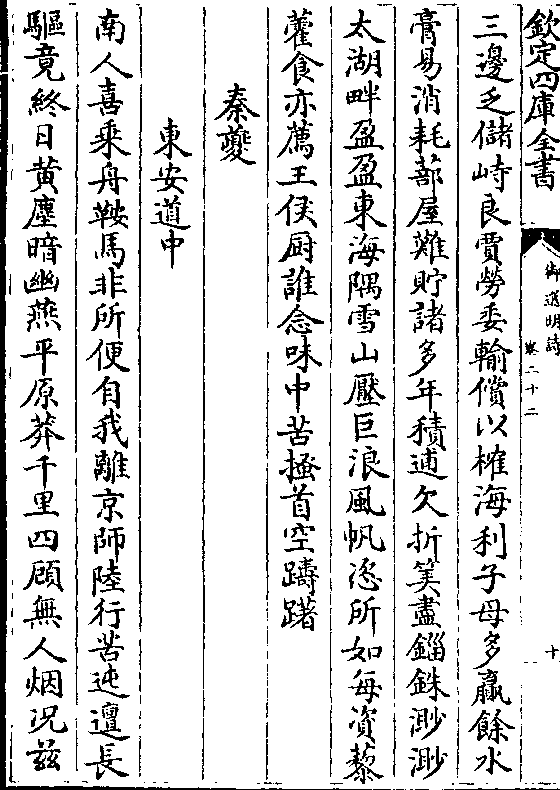 欽定四庫全書
御選明詩
卷二十二
十
三邊乏儲峙良賈勞委輸償以榷海利子母多贏餘水
膏易消耗蔀屋難貯諸多年積逋欠折筭盡錙銖渺渺
太湖畔盈盈東海隅雪山壓巨浪風帆恣所如每資藜
藿食亦薦王侯厨誰念味中苦搔首空躊躇
秦夔
東安道中
南人喜乘舟鞍馬非所便自我離京師陸行苦迍邅長
驅竟終日黄塵暗幽燕平原莽千里四顧無人烟况兹